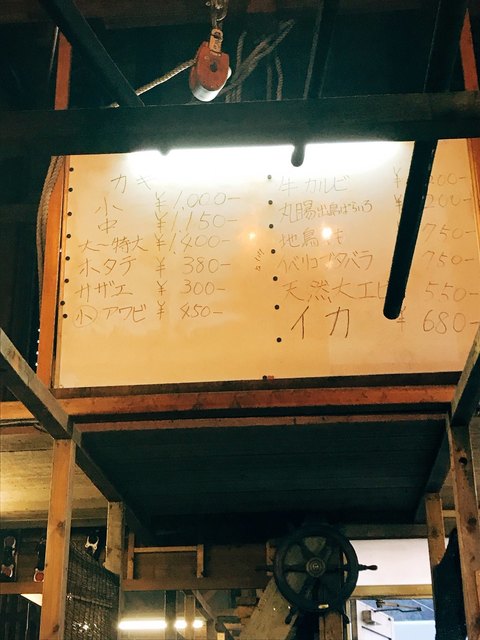 カキ
小 ¥1,000-
中 ¥1,150-
大〜特大 ¥1,400-
ホタテ ¥380-
サザエ ¥300-
小 アワビ ¥450-
牛カルビ ¥
丸腸 ¥
地鳥 750-
イベリコ 750-
天然大エビ 550-
イカ ¥680-